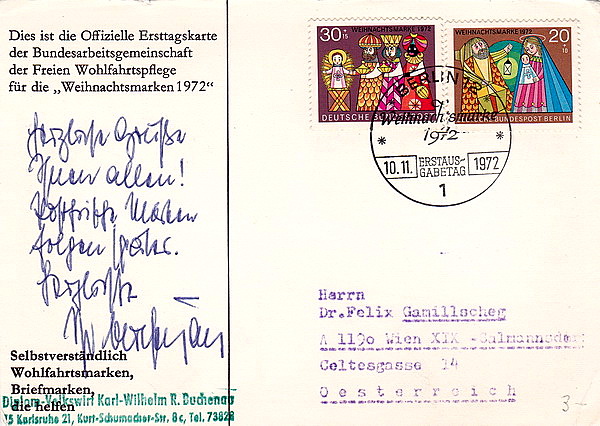 Dies ist die Offizielle Ersttagskarte
der Bundesarbeitsgemeinschaft
der Freien Wohlfahrtspflege
für die „Weihnachtsmarken 1972“
Herzliche Grüße
Ihnen allen!
Postfrische Marken
folgen später.
Herzlichst
Selbstverständlich
Wohlfahrtsmarken,
Briefmarken,
die helfen
Diplom-Volkswirt Karl-Wilhelm R. Buchenau
75 Karlsruhe 21, Kurt-Schumacher-Str. 8c, Tel. 73828
30+15 WEIHNACHTSMARKE 1972
DEUTSCHE
WEIHNACHTSMARKE 1972 20+10
POST BERLIN
BERLIN
Weihnachtsmarke
1972
10.11. ERSTAUS-
GABETAG 1972
1
Herrn
Dr.Felix Gamillscheg
A 1190 Wien XIX -Salmannsdorf
Celtesgasse 14
Oesterreich
3-